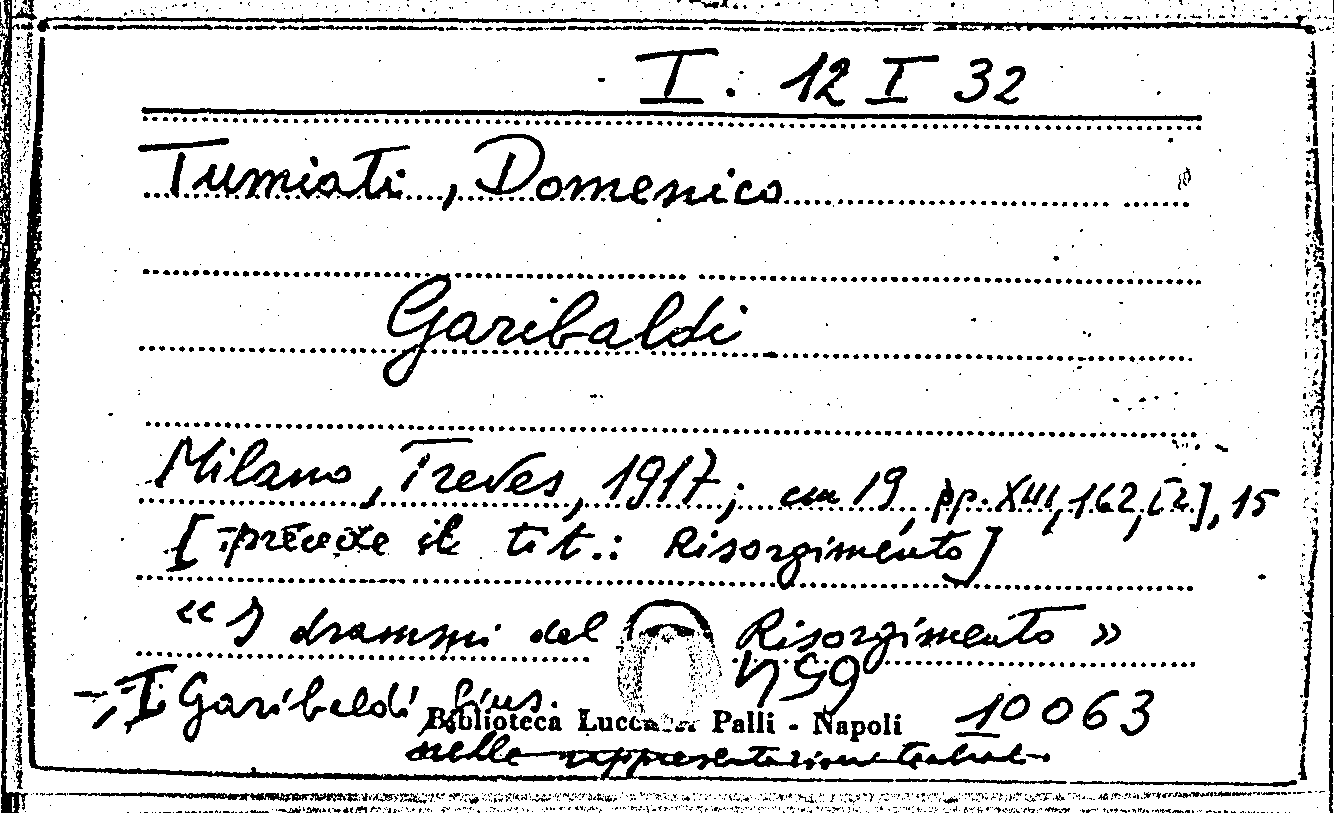 I. 12 I 32
Tumiati, Domenico
Garibaldi
Milano, Treves, 1917; cm 19, pp. XIII, 162, [2], 15
[precede il tit.: Risorgimento]
« I drammi del Risorgimento »
I. Garibaldi, Gius.
Biblioteca Lucchesi Palli - Napoli
10063
nelle rappresentazioni teatrali